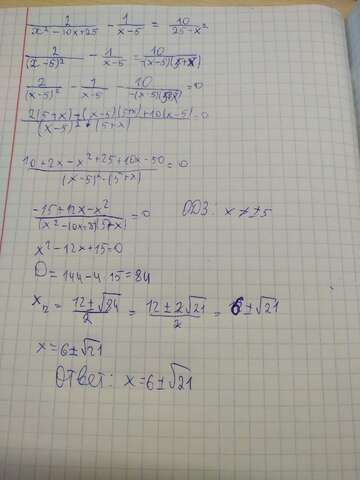 2/(x²-10x+25) - 1/(x-5) = 10/(25-x²)
2/(x-5)² - 1/(x-5) = 10/(-(x-5)(5+x))
2/(x-5)² - 1/(x-5) - 10/(-(x-5)(5+x)) = 0
(2(5+x)-(x-5)(5+x)+10(x-5))/((x-5)²·(5+x)) = 0
(10+2x-x²+25+10x-50)/((x-5)²·(5+x)) = 0
(-15+12x-x²)/((x²-10x+25)(5+x)) = 0 ОДЗ: x≠±5
x²-12x+15=0
D=144-4·15=84
x₂ = (12±√84)/2 = (12±2√21)/2 = 6±√21
x=6±√21
Ответ: x=6±√21